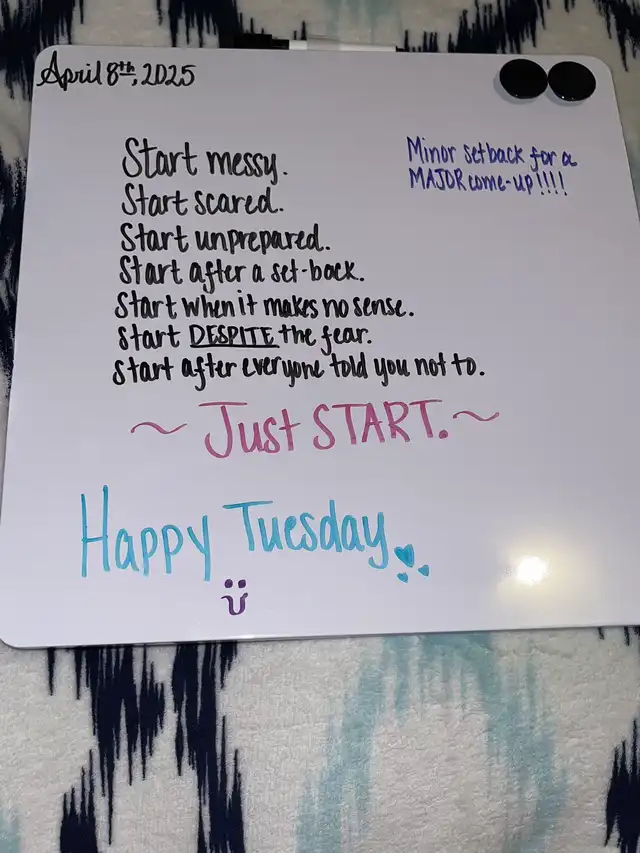 April 8th, 2025
Minor setback for a
MAJOR come-up!!!!
Start messy.
Start scared.
Start unprepared.
Start after a set-back.
Start when it makes no sense.
Start DESPITE the fear.
Start after everyone told you not to.
~ Just START. ~
Happy Tuesday